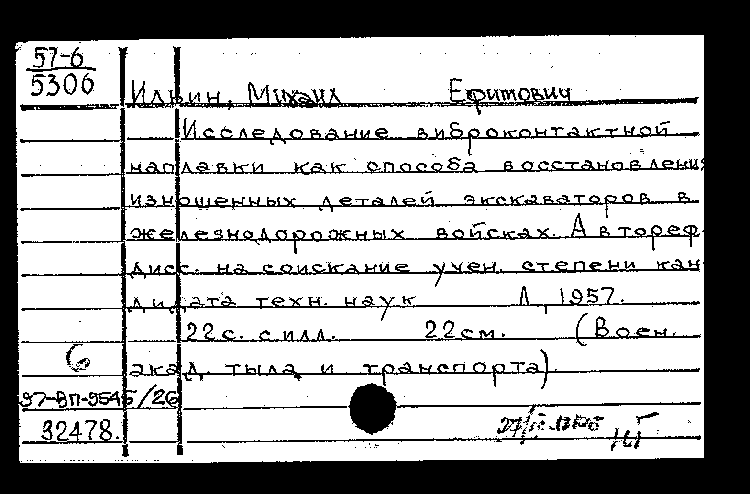 57-6
5306
Ильин, Михаил Ефимович
Исследование виброконтактной
наплавки как способа восстановления
изношенных деталей экскаваторов в
железнодорожных войсках. Автореф.
дисс. на соискание учен. степени кан
дидата техн. наук Л, 1957.
22с. с илл. 22см. (Воен.
акад. тыла и транспорта)
6
97-ВП-9545/26
32478.